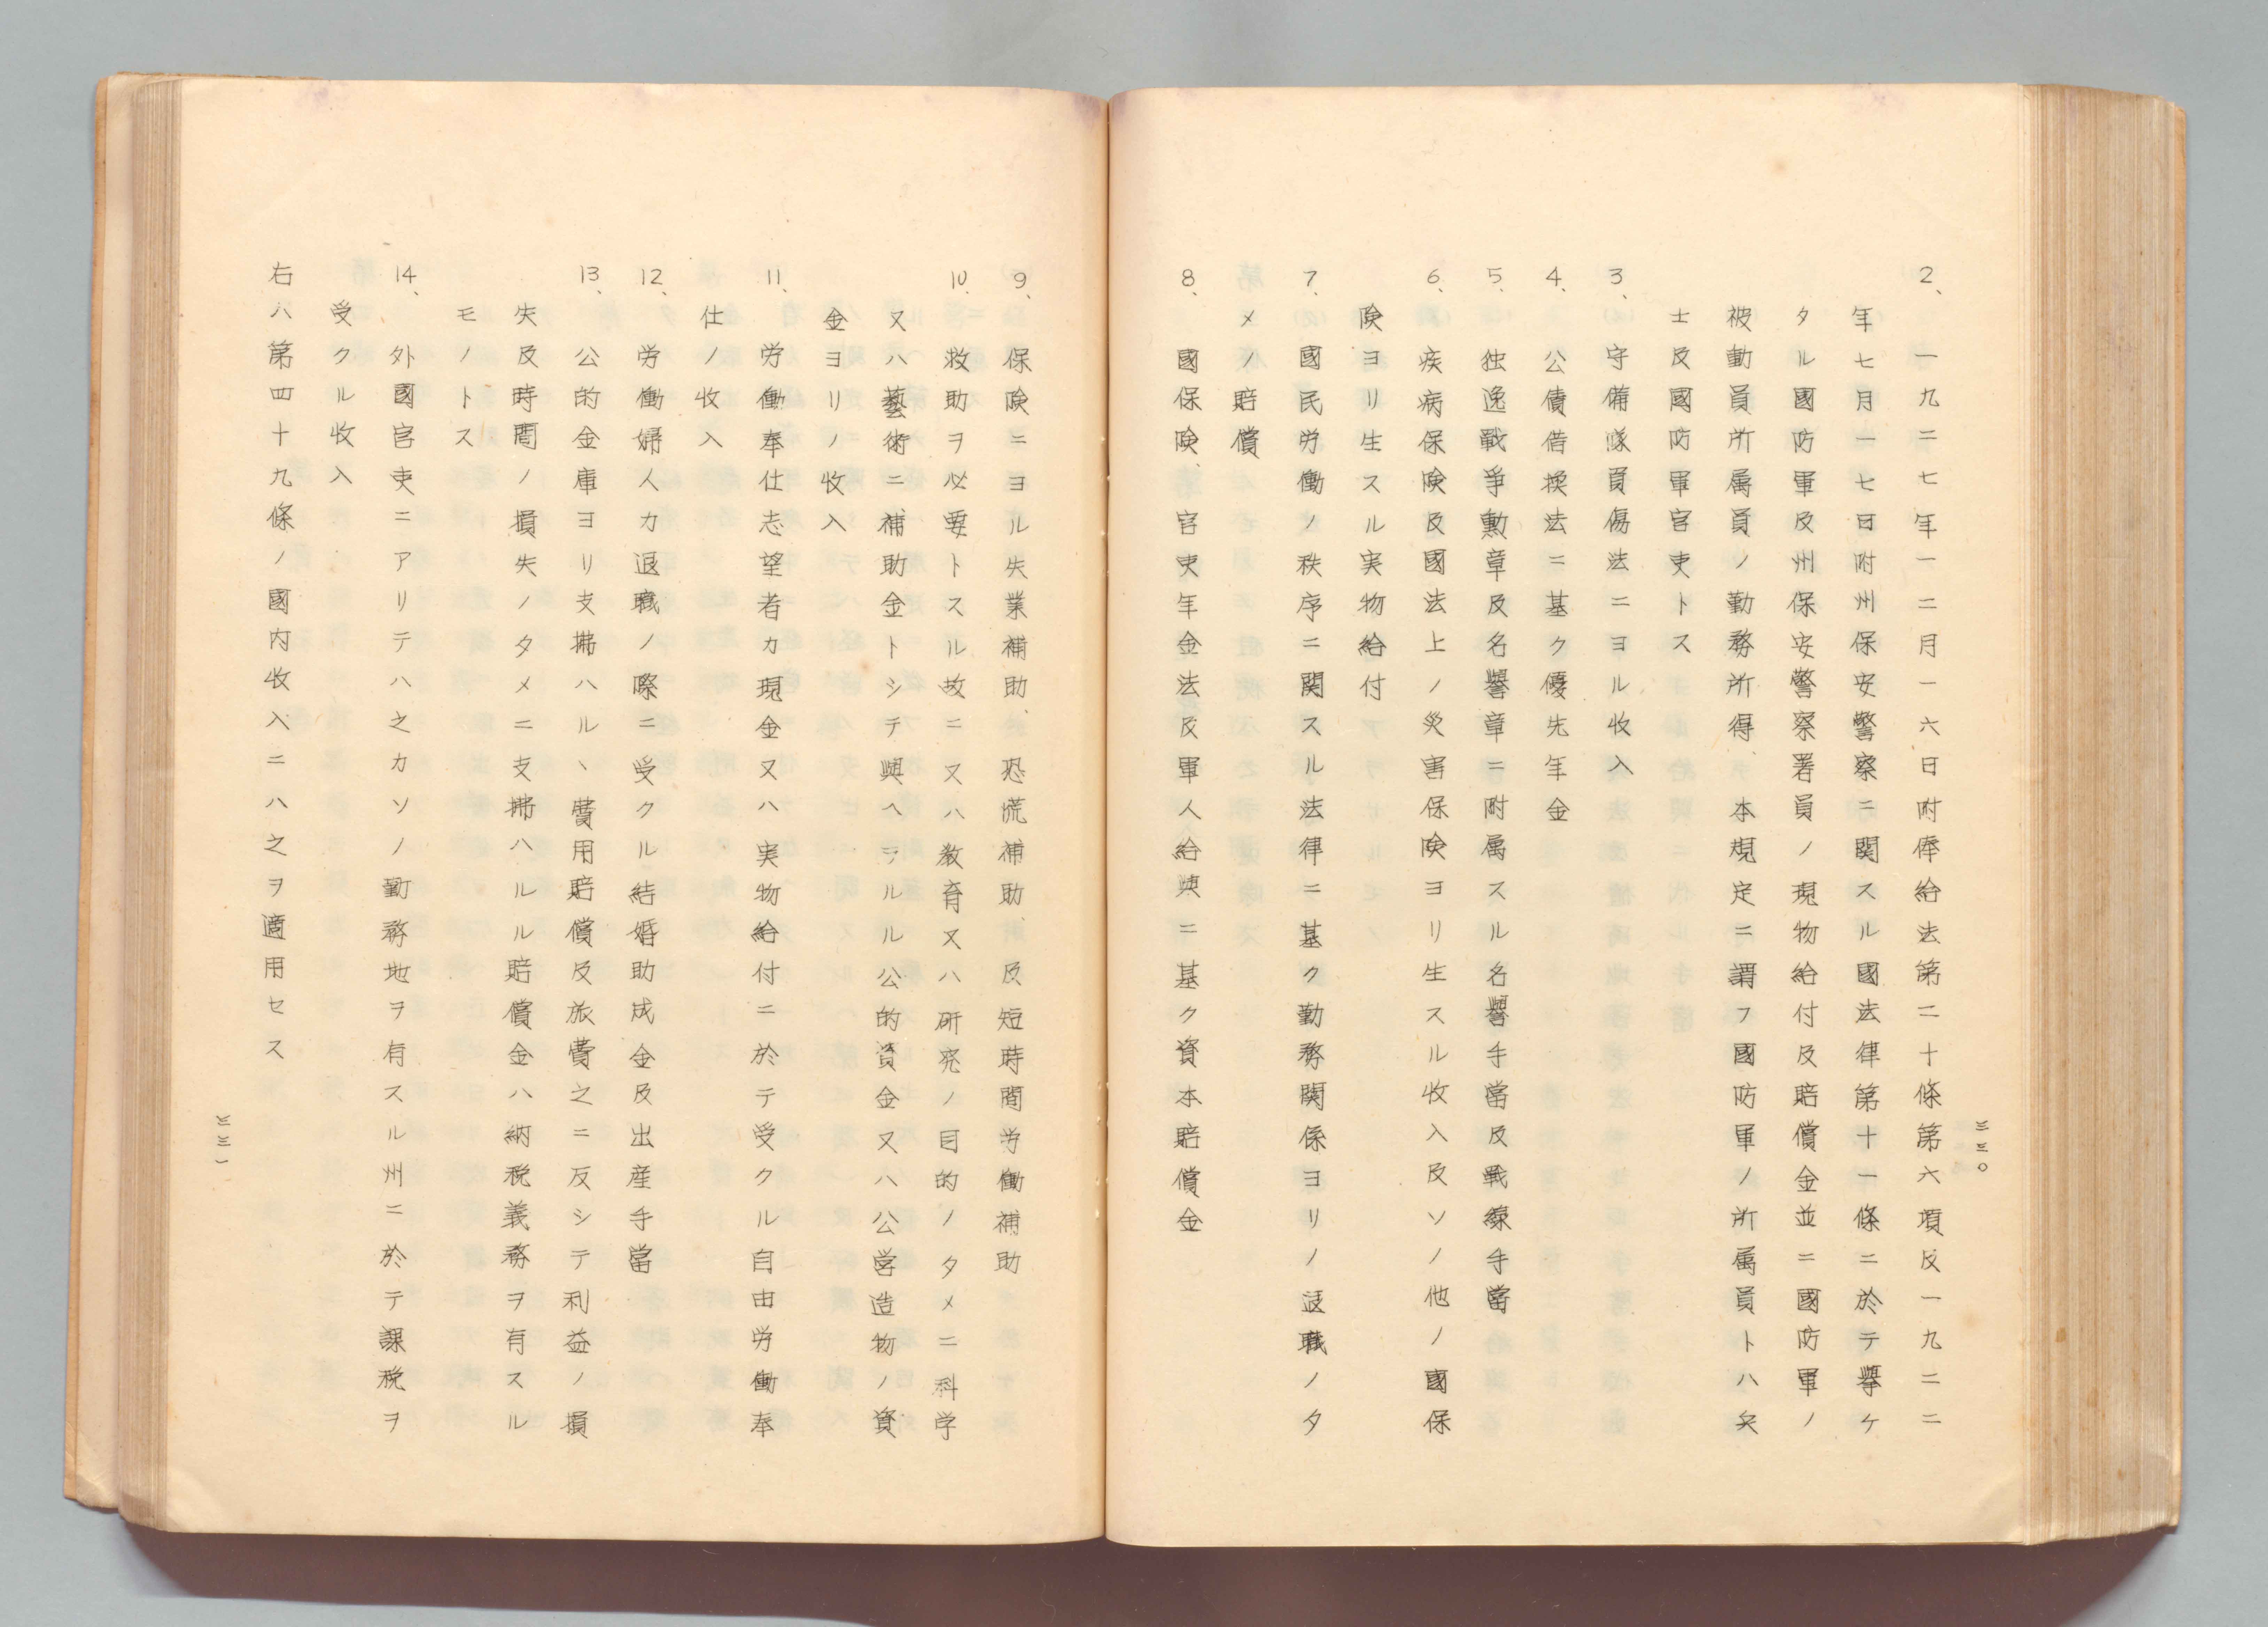 三三〇
2、一九二七年一二月一六日附俸給法第二十條第六項及一九二二
年七月一七日附州保安警察ニ関スル國法律第十一條ニ於テ擧ケ
タル國防軍及州保安警察署員ノ現物給付及賠償金並ニ國防軍ノ
被動員所属員ノ勤務所得 本規定ニ謂フ國防軍ノ所属員トハ兵
士及國防軍官吏トス
3、守備隊員傷法ニヨル收入
4、公債借換法ニ基ク優先年金
5、独逸戰爭勲章及名譽章ニ附属スル名譽手當及戰線手當
6、疾病保険及國法上ノ災害保険ヨリ生スル收入及ソノ他ノ國保
険ヨリ生スル実物給付
7、國民労働ノ秩序ニ関スル法律ニ基ク勤務関係ヨリノ退職ノタ
メノ賠償
8、國保険、官吏年金法及軍人給與ニ基ク資本賠償金
9、保険ニヨル失業補助、恐慌補助、及短時間労働補助
10、救助ヲ必要トスル故ニ又ハ教育又ハ研究ノ目的ノタメニ科学
又ハ藝術ニ補助金トシテ與ヘラルル公的資金又ハ公営造物ノ資
金ヨリノ收入
11、労働奉仕志望者カ現金又ハ実物給付ニ於テ受クル自由労働奉
仕ノ收入
12、労働婦人カ退職ノ際ニ受クル結婚助成金及出産手當
13、公的金庫ヨリ支拂ハル、費用賠償及旅費之ニ反シテ利益ノ損
失及時間ノ損失ノタメニ支拂ハルル賠償金ハ納税義務ヲ有スル
モノトス
14、外國官吏ニアリテハ之カソノ勤務地ヲ有スル州ニ於テ課税ヲ
受クル收入
右ハ第四十九條ノ國内收入ニハ之ヲ適用セス
三三一